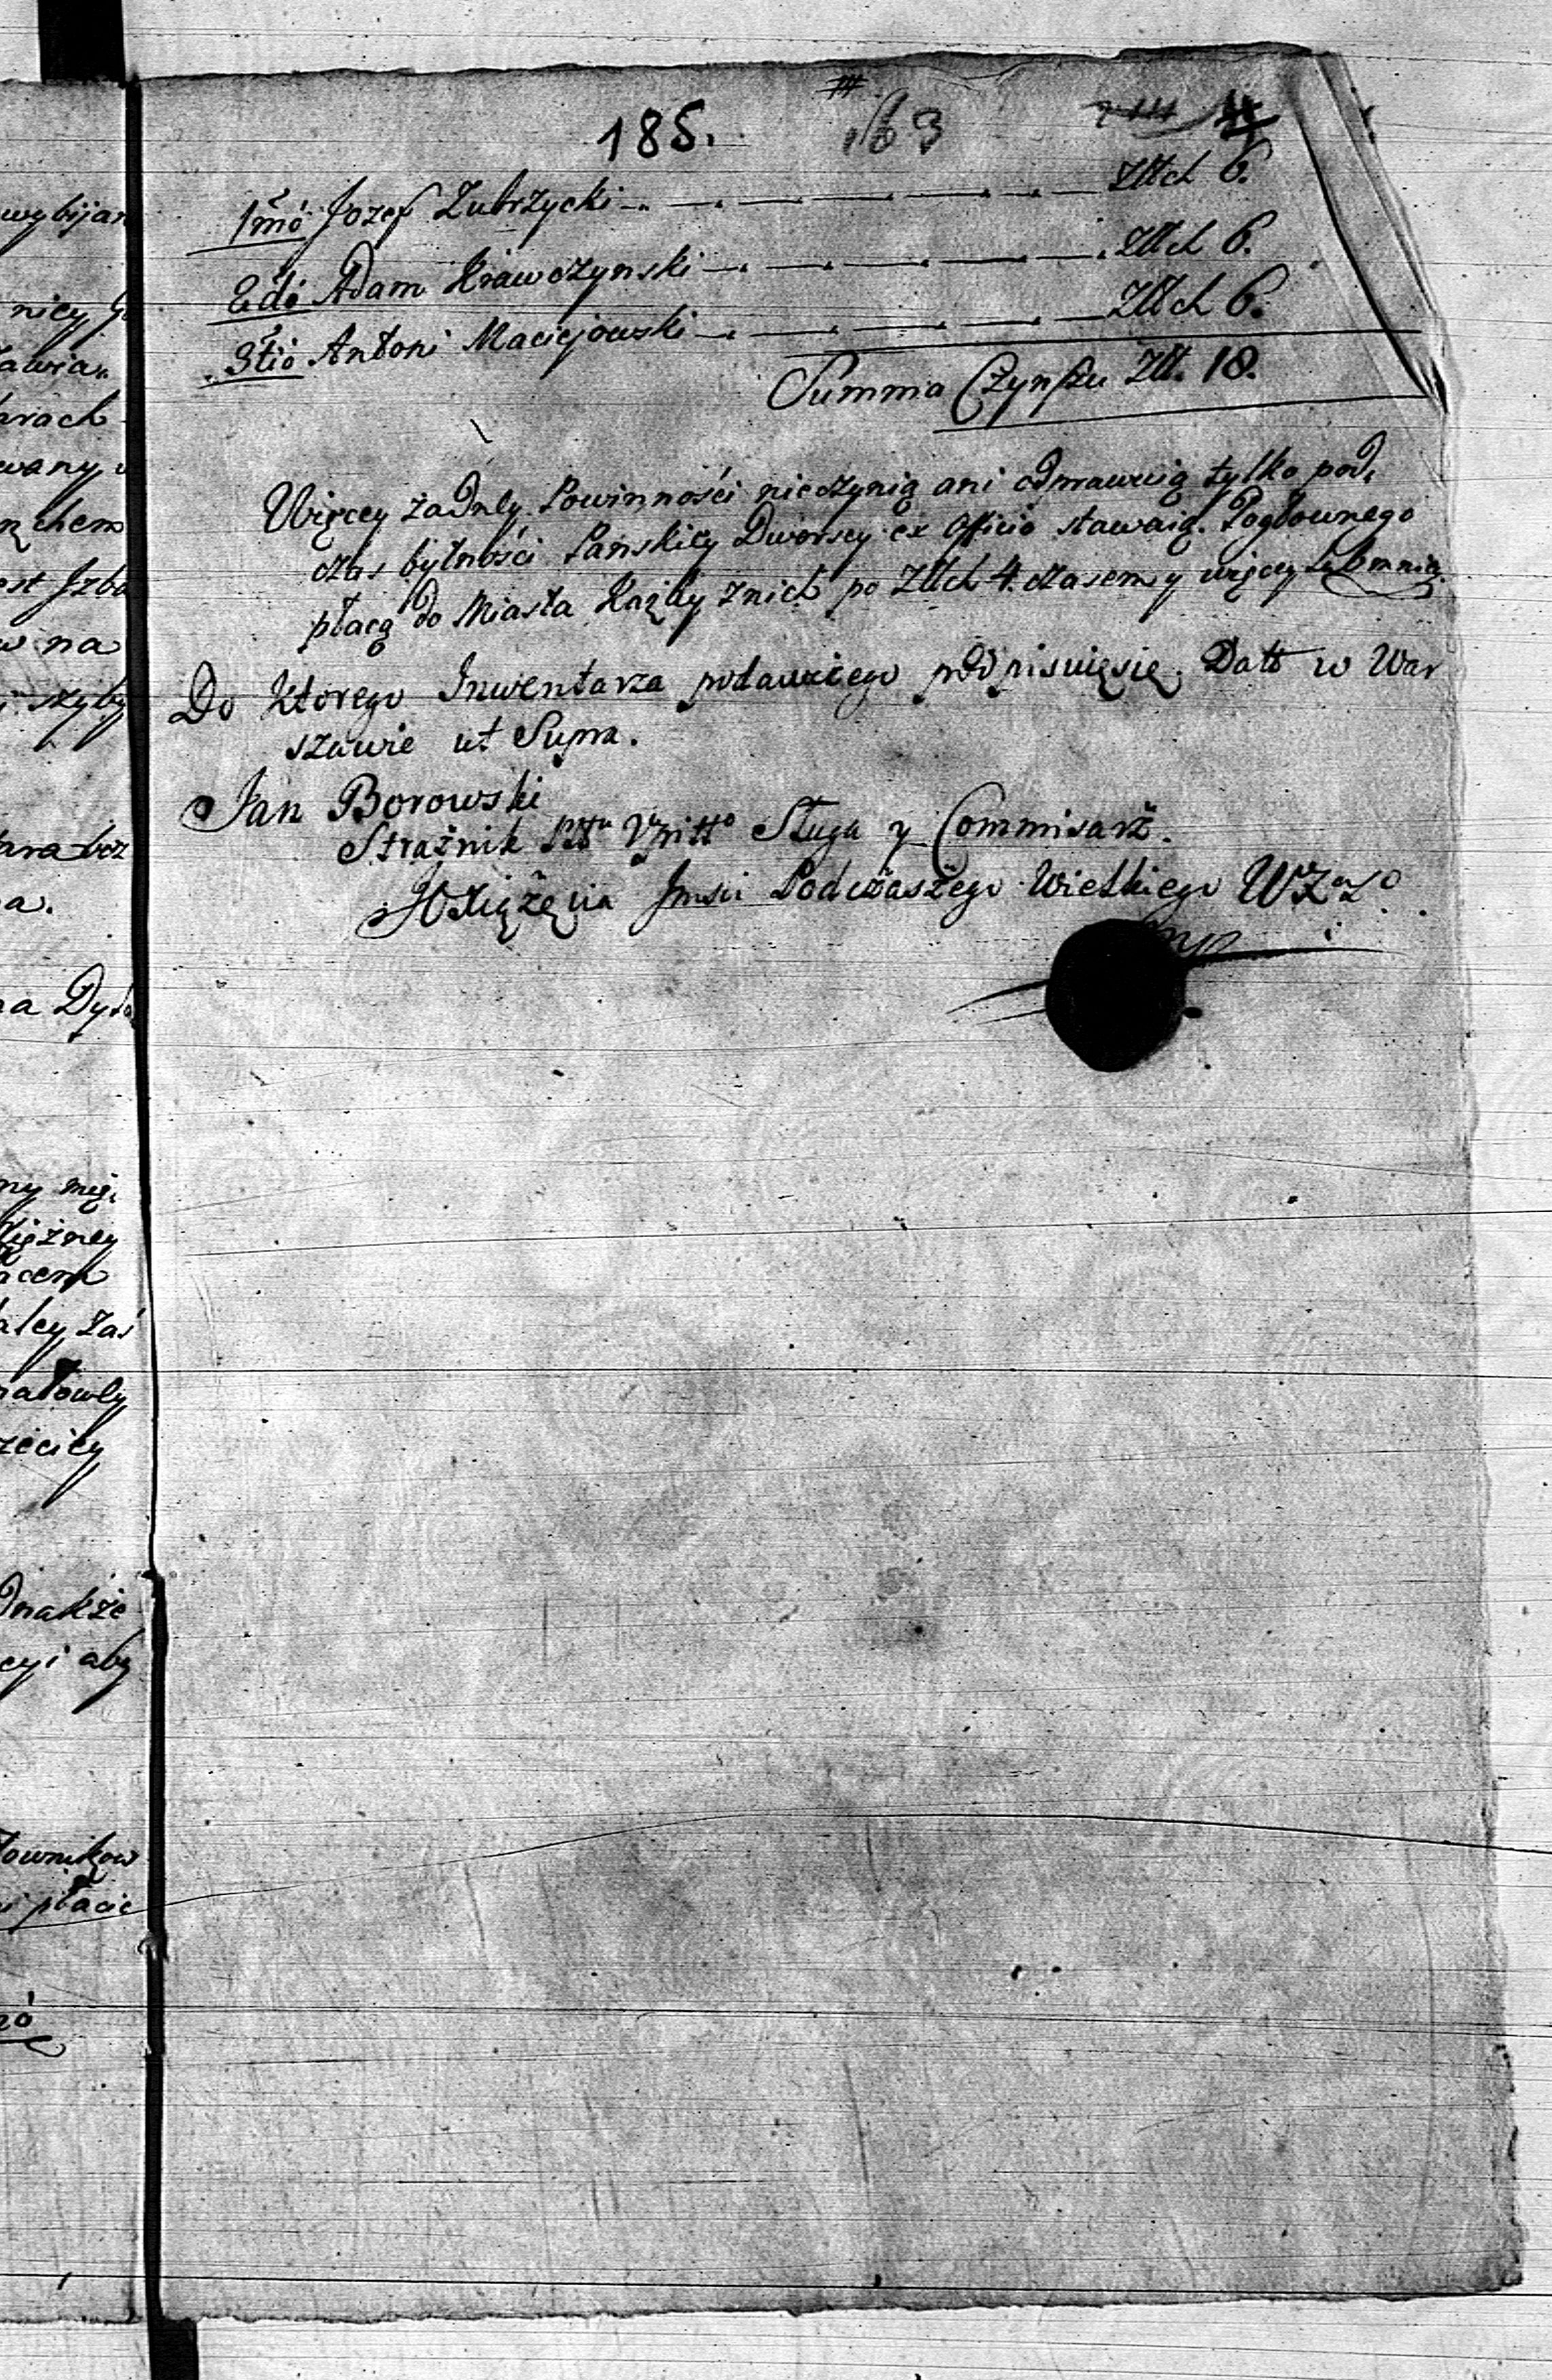 185. 163
1mo Jozef Zubrzycki Złłch 6.
2do Adam Krawczynski Złłch 6.
3tio Antoni Maciejowski Złłch 6.
Summa Czynszu Złł. 18.
Więcey żadney Powinności nieczynią ani odprawuią tylko pod,
czas bytności Pańskiey Dworscy ex Officio stawaią. Pogłownego
płacą do Miasta Każdy znich po Złłch 4. czasem y więcey
Do ktorego Inwentarza podawczego podpisuięsię. Datt w War
szawie ut Supra.
Jan Borowski
Strażnik Sługa y Commisarz.
Xiążęcia Jmsci Podczaszego Wielkiego
mp
wybijan
nicy
arach
wany
chem
est Jzba
w na
szyby
a.
na Dy
ny mę,
acem
alcy zaś
zeciey
cyi aby
townikow
płacić